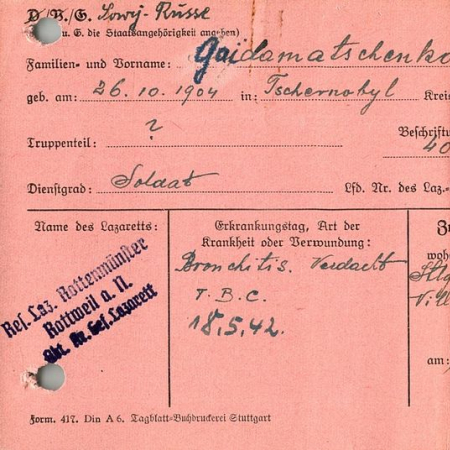 D./B./G. Sowj-Russe
(b. G. die Staatsangehörigkeit angeben)
Familien- und Vorname: Gaidamatschenko
geb. am: 26.10.1904 in: Tschernobyl Kreis
Truppenteil: ? Beschriftu
40
Dienstgrad: Soldat Lfd. Nr. des Laz.-
Name des Lazaretts:
Res. Laz. Rottenmünster
Rottweil a. N.
Abt. Kr. Gef. Lazarett
Erkrankungstag, Art der
Krankheit oder Verwundung:
Bronchitis. Verdacht
T.B.C.
18.5.42.
Zu
woh
Stlg
Vill
am:
Form. 417. Din A 6. Tagblatt-Buchdruckerei Stuttgart